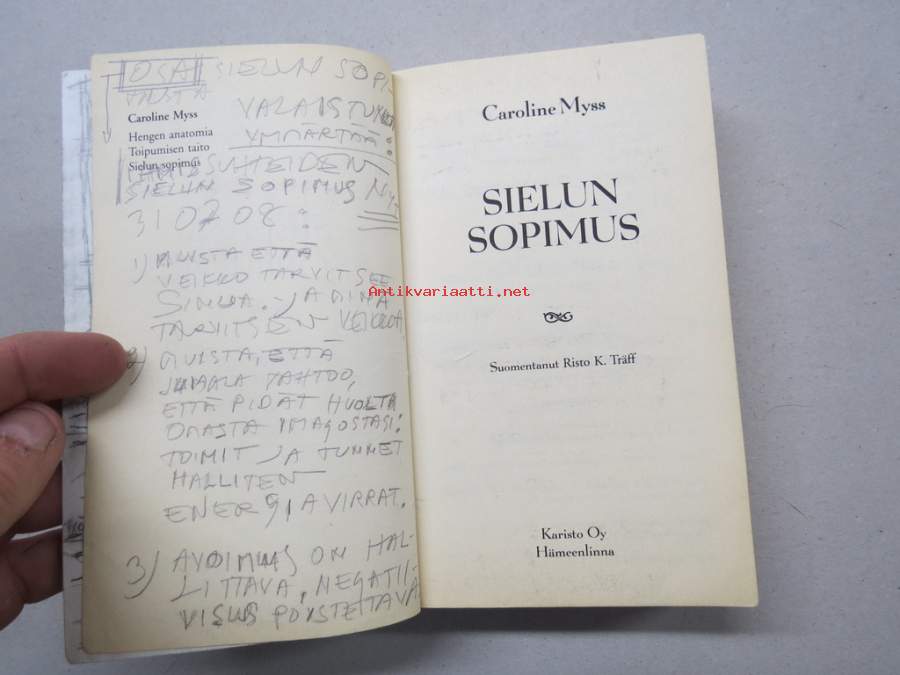 OSA SIELUN SOPI-
VALAISTUNUT
Caroline Myss
YMMÄRTÄÄ:
Hengen anatomia
Toipumisen taito
Sielun sopimus
SUHTEIDEN
SIELUN SOPIMUS NYT
310708:
1) MUISTA ETTÄ
VEIKKO TARVITSEE
SINUA. JA SINÄ
TARVITSET VEIKKOA
2) MUISTA, ETTÄ
JUMALA TAHTOO,
ETTÄ PIDÄT HUOLTA
OMASTA IMAGOSTASI:
TOIMIT JA TUNNET
HALLITEN
ENERGIAVIRRAT.
3) AVOIMUUS ON HAL-
LITTAVA, NEGATII-
VISUUS POISTETTAVA
Caroline Myss
SIELUN
SOPIMUS
Antikvariaatti.net
Suomentanut Risto K. Träff
Karisto Oy
Hämeenlinna